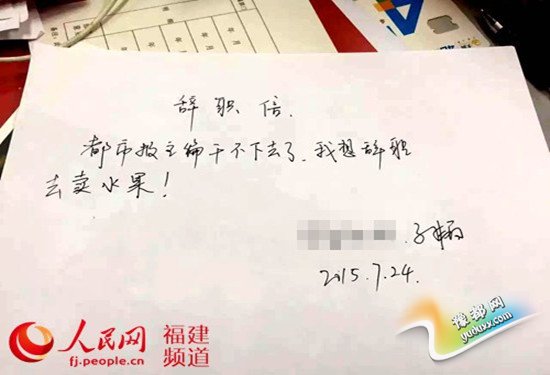 辞职信.
都市报主编干不下去了,我想辞职
去卖水果!
子炳
2015.7.24.
人民网 福建
fj.people.cn 频道
豫都网
yuduxx.com